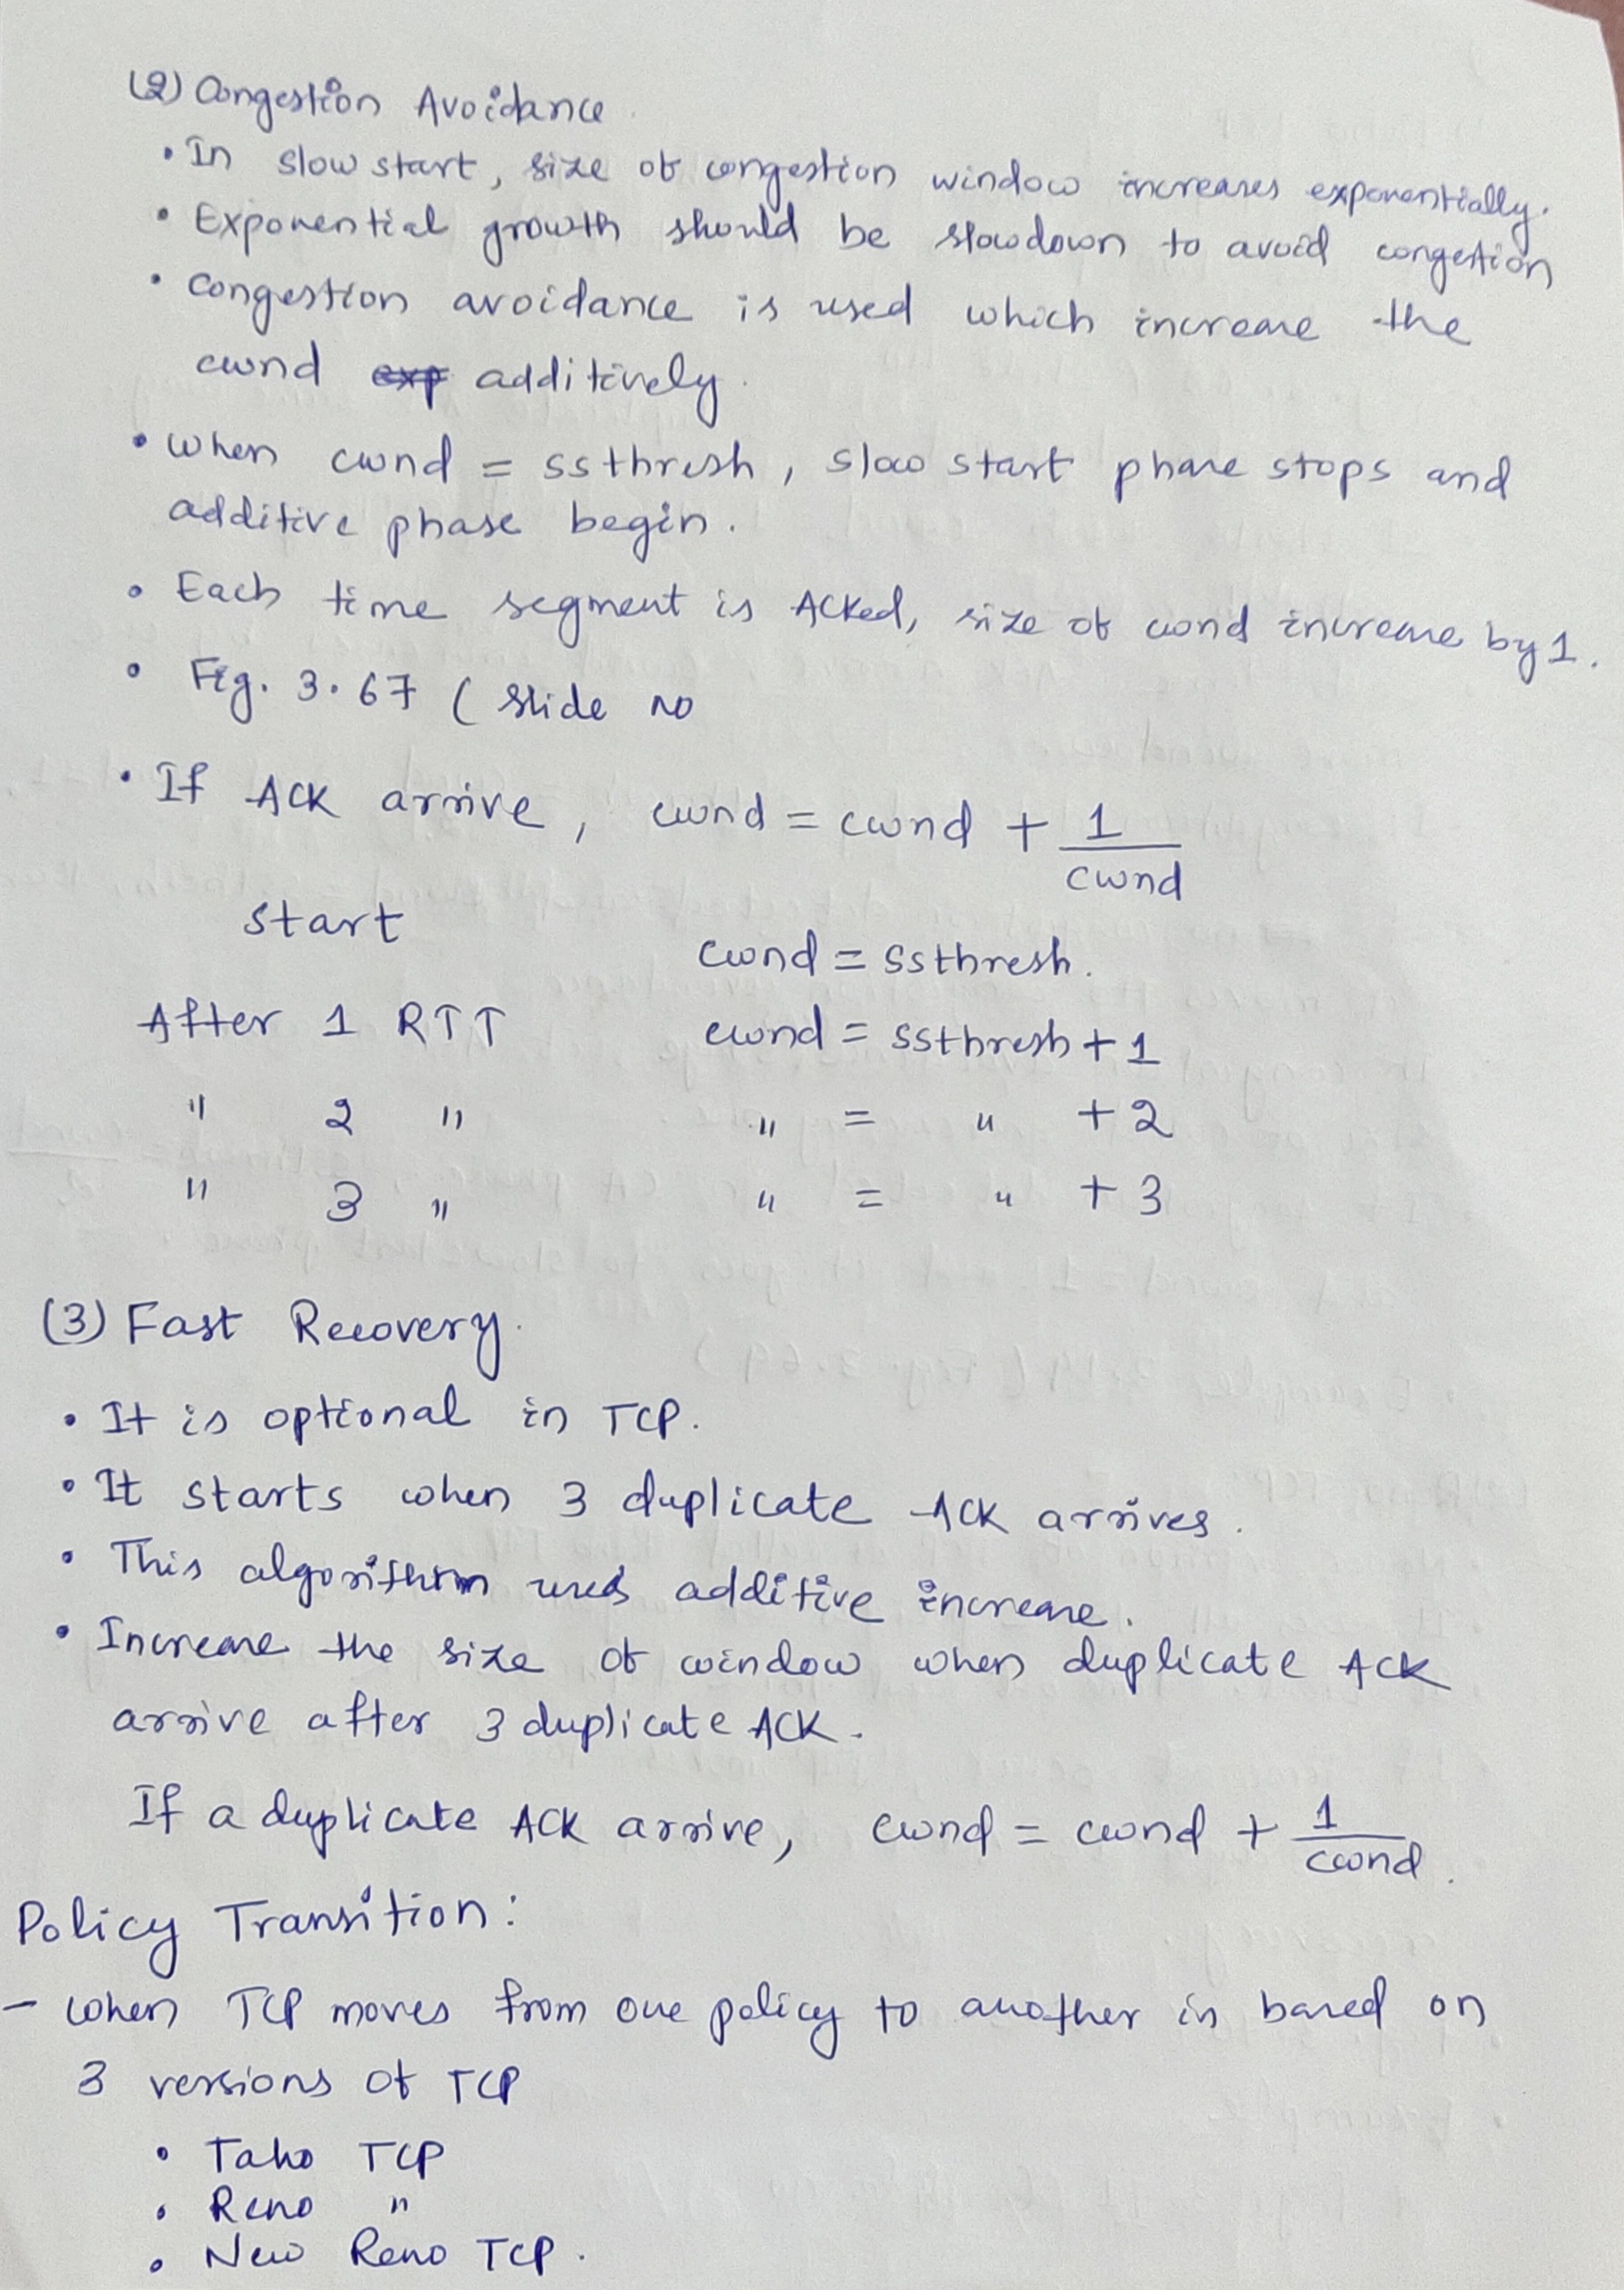 (2) Congestion Avoidance.
• In slow start, size of congestion window increases exponentially.
• Exponential growth should be slowdown to avoid congestion
• Congestion avoidance is used which increase the
cwnd exp additively.
• When cwnd = ssthresh, slow start phase stops and
additive phase begin.
• Each time segment is ACKed, size of cwnd increase by 1.
• Fig. 3.67 ( Slide no
• If ACK arrive, cwnd = cwnd + 1/cwnd
start cwnd = ssthresh.
After 1 RTT cwnd = ssthresh + 1
" 2 " " = " + 2
" 3 " " = " + 3
(3) Fast Recovery.
• It is optional in TCP.
• It starts when 3 duplicate ACK arrives.
• This algorithm uses additive increase.
• Increase the size of window when duplicate ACK
arrive after 3 duplicate ACK.
If a duplicate ACK arrive, cwnd = cwnd + 1/cwnd.
Policy Transition:
- When TCP moves from one policy to another is based on
3 versions of TCP
• Taho TCP
• Reno "
• New Reno TCP.